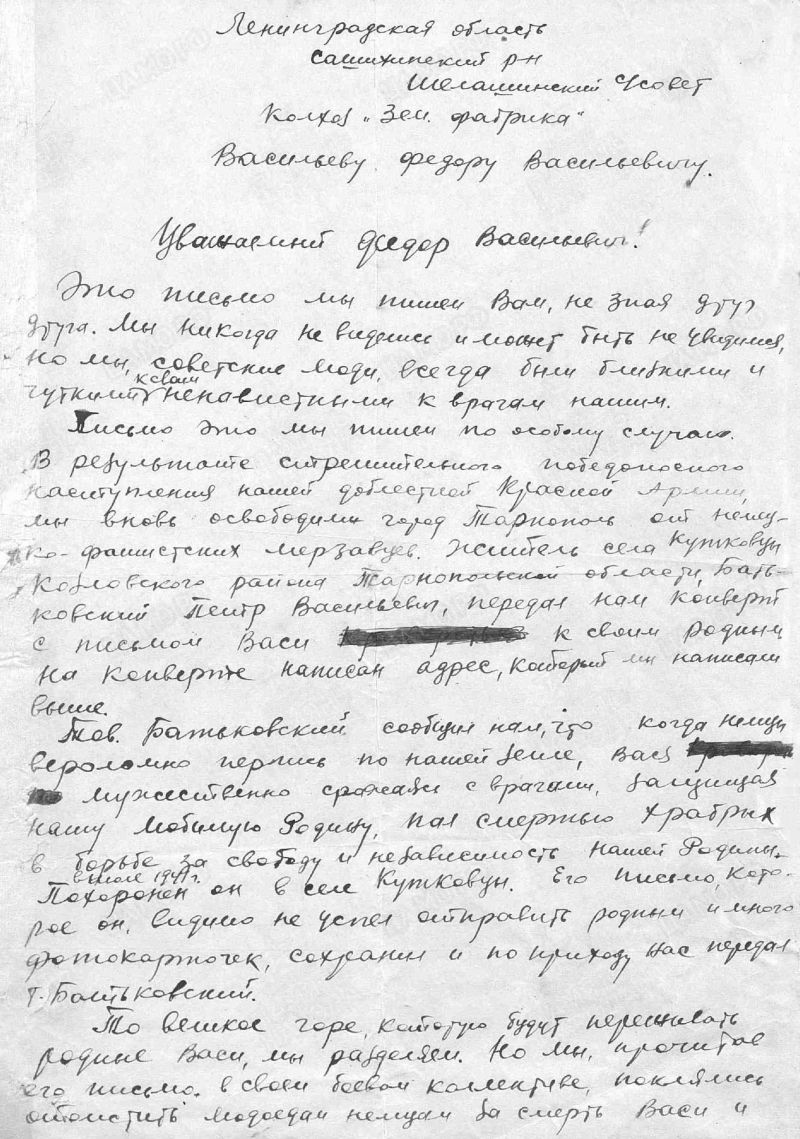 Ленинградская область
Сашихинский р-н
Шелашинский С/совет
Колхоз "Зем. фабрика"
Васильеву Федору Васильевичу.
Уважаемый Федор Васильевич!
Это письмо мы пишем Вам, не зная друг
друга. Мы никогда не виделись и может быть не увидимся,
но мы, советские люди, всегда были близкими и
чуткими к своим ненавистными к врагам нашим.
Письмо это мы пишем по особому случаю.
В результате стремительного победоносного
наступления нашей доблестной Красной Армии,
мы вновь освободили город Тарнополь от немец-
ко-фашистских мерзавцев. Житель села Кутковцы
Козловского района Тарнопольской области, Бать-
ковский Петр Васильевич, передал нам конверт
с письмом Васи к своим родным
На конверте написан адрес, который мы написали
выше.
Тов. Батьковский сообщил нам, что когда немцы
вероломно перлись по нашей земле, Вася
мужественно сражаясь с врагами, защищая
нашу любимую Родину, пал смертью храбрых
в борьбе за свободу и независимость нашей Родины.
в июле 1941 г.
Похоронен он в селе Кутковцы. Его письмо, кото-
рое он, видимо не успел отправить родным и много
фотокарточек, сохранил и по приходу нас передал
т. Батьковский.
То великое горе, которую будут переживать
родные Васи, мы разделяем. Но мы, прочитав
его письмо в своем боевом коллективе, поклялись
отомстить людоедам немцам за смерть Васи и